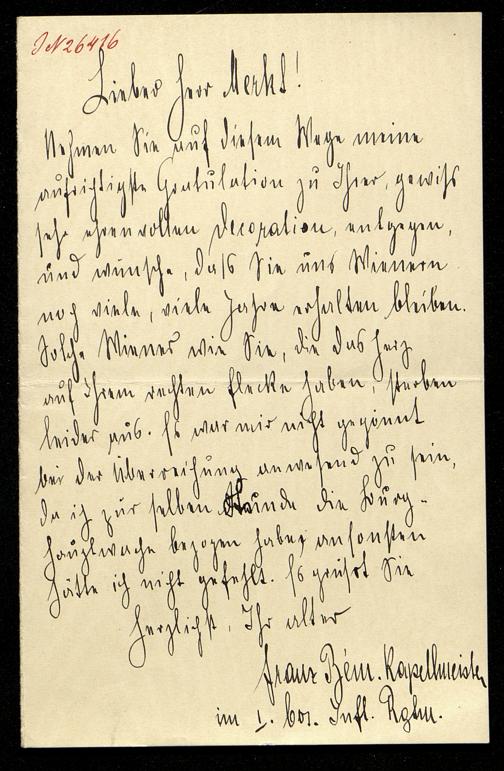 JN 26416
Lieber Herr Merkl!
Nehmen Sie auf diesem Wege meine
aufrichtigste Gratulation zu Ihrer, gewiß
sehr ehrenvollen Decoration, entgegen,
und wünsche, daß Sie uns Wienern
noch viele, viele Jahre erhalten bleiben.
Solche Wiener wie Sie, die das Herz
auf ihrem rechten Flecke haben, sterben
leider aus. Es war mir nicht gegönnt
bei der Überreichung anwesend zu sein,
da ich zur selben Stunde die Burg-
hauptwache bezogen habe, ansonsten
hätte ich nicht gefehlt. Es grüßt Sie
herzlichst, Ihr alter
Franz Kapellmeister
im 1. bos. Inft. Rgtm.